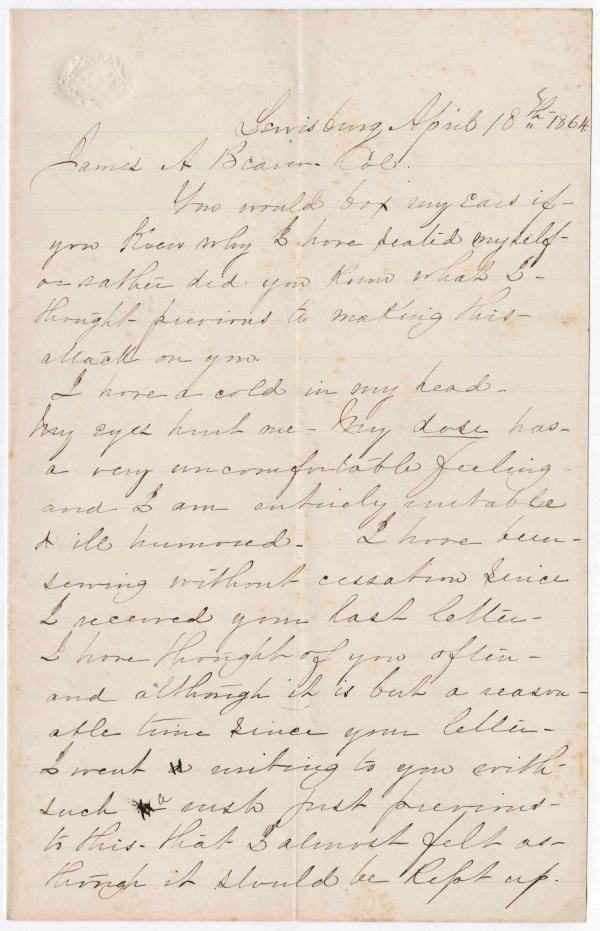 Lewisburg April 18th 1864
James A Beaver Col.
You would box my ears if
you knew why I have seated myself
or rather did you know what I
thought previous to making this
attack on you.
I have a cold in my head.
My eyes hurt me - My dose has
a very uncomfortable feeling
and I am entirely irritable
& ill humored. I have been
sewing without cessation since
I received your last letter.
I have thought of you often
and although it is but a reason-
able time since your letter
I went writing to you with
such a rush just previous
to this that I almost felt as
though it should be kept up.